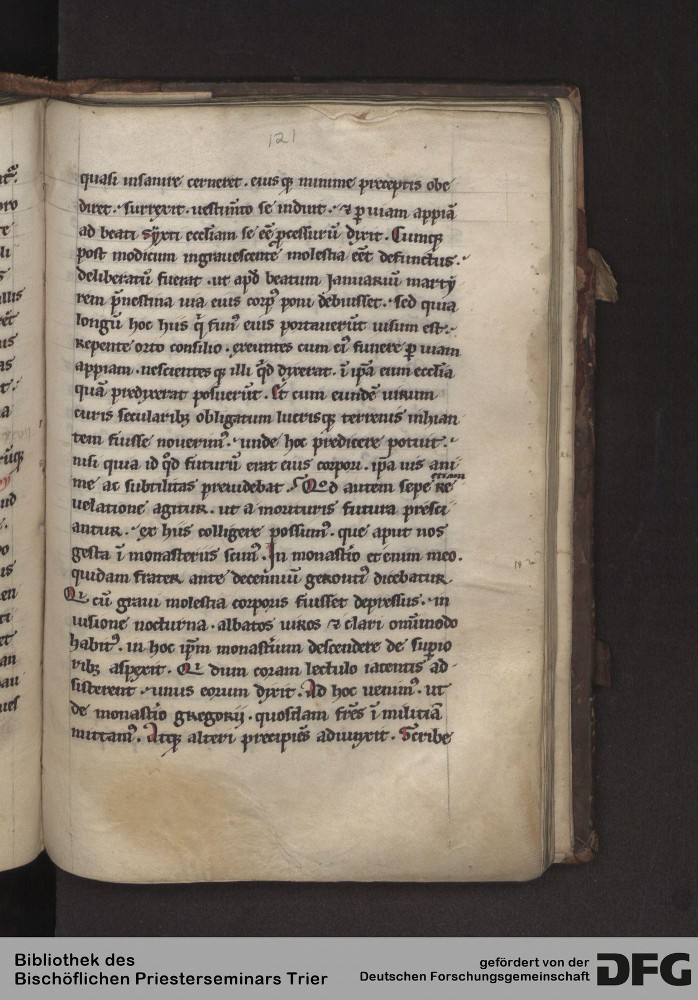 121
quasi insanire cerneret. eiusq; minime preceptis obe
diret. surrexit. uestim̄to se induit. ⁊ ꝑ uiam appiā
ad beati syxti eccl̄iam se eē ꝓcessurū dixit. Cumq;
post modicum ingrauescente molestia eēt defunctus.
deliberatū fuerat. ut apd̄ beatum Ianuariū marty
rem p̄nestina uia eius corpꝰ poni debuisset. sed quia
longū hoc hiis q̄ funꝰ eius portauerūt uisum est.
Repente orto consilio. exeuntes cum eiꝰ funere ꝑ uiam
appiam. nescientesq; illi qd̄ dixerat. ī ip̄a eum eccl̄ia
quā predixerat posuerūt. Et cum eundē uirum
curis secularibꝫ obligatum lucrisq; terrenis inhian
tem fuisse nouerimꝰ. unde hoc predicere potuit.
nisi quia id qd̄ futurū erat eius corpori. ip̄a uis ani
me ac subtilitas preuidebat. Qd̄ autem sepe etiam re
uelatione agitur. ut a morituris futura presci
antur. ex hiis colligere possumꝰ. que aput nos
gesta ī monasteriis scimꝰ. In monast̄io etenim meo.
quidam frater ante decenniū geronti dicebatur
Qi cū graui molestia corporis fuisset depressus. in
uisione nocturna. albatos uiros ⁊ clari om̄imodo
habitꝰ. in hoc ip̄m monast̄ium descendere de suꝑio
ribꝫ aspexit. Qi dum coram lectulo iacentis ad
sisterent. unus eorum dixit. Ad hoc uenimꝰ. ut
de monast̄io gregorii. quosdam fr̄es ī militiā
mittamꝰ. Atq; alteri precipiēs adiunxit. Scribe
182
Bibliothek des
Bischöflichen Priesterseminars Trier
gefördert von der
Deutschen Forschungsgemeinschaft
DFG